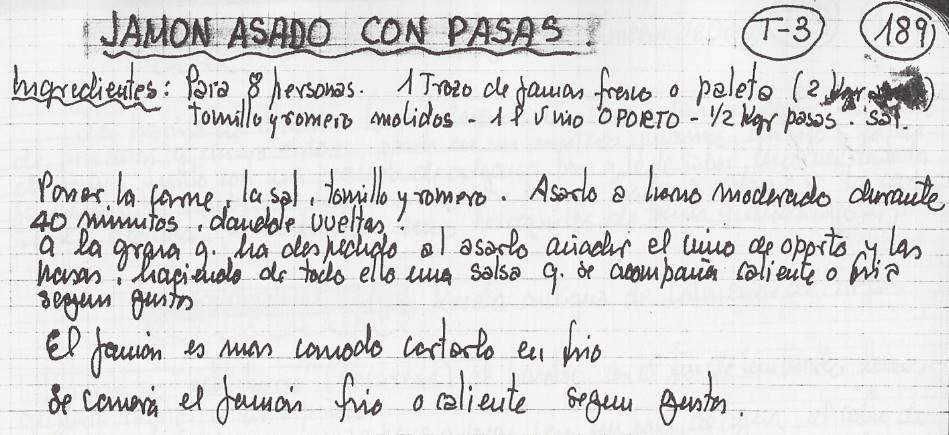 JAMON ASADO CON PASAS. T-3 189
Ingredientes: Para 8 personas. 1 Trozo de jamon fresco o paleta (2 Kgr
Tomillo y romero molidos - 1 l vino OPORTO - 1/2 Kgr pasas. sal.
Poner la carne, la sal, tomillo y romero. Asarlo a horno moderado durante
40 minutos, dandole vueltas.
a la grasa q. ha despedido al asarlo añadir el vino de oporto y las
pasas. haciendo de todo ello una salsa q. se acompaña caliente o fria
segun gustos
El jamón es mas comodo cortarlo en frio
se comerá el jamón frio o caliente segun gustos.